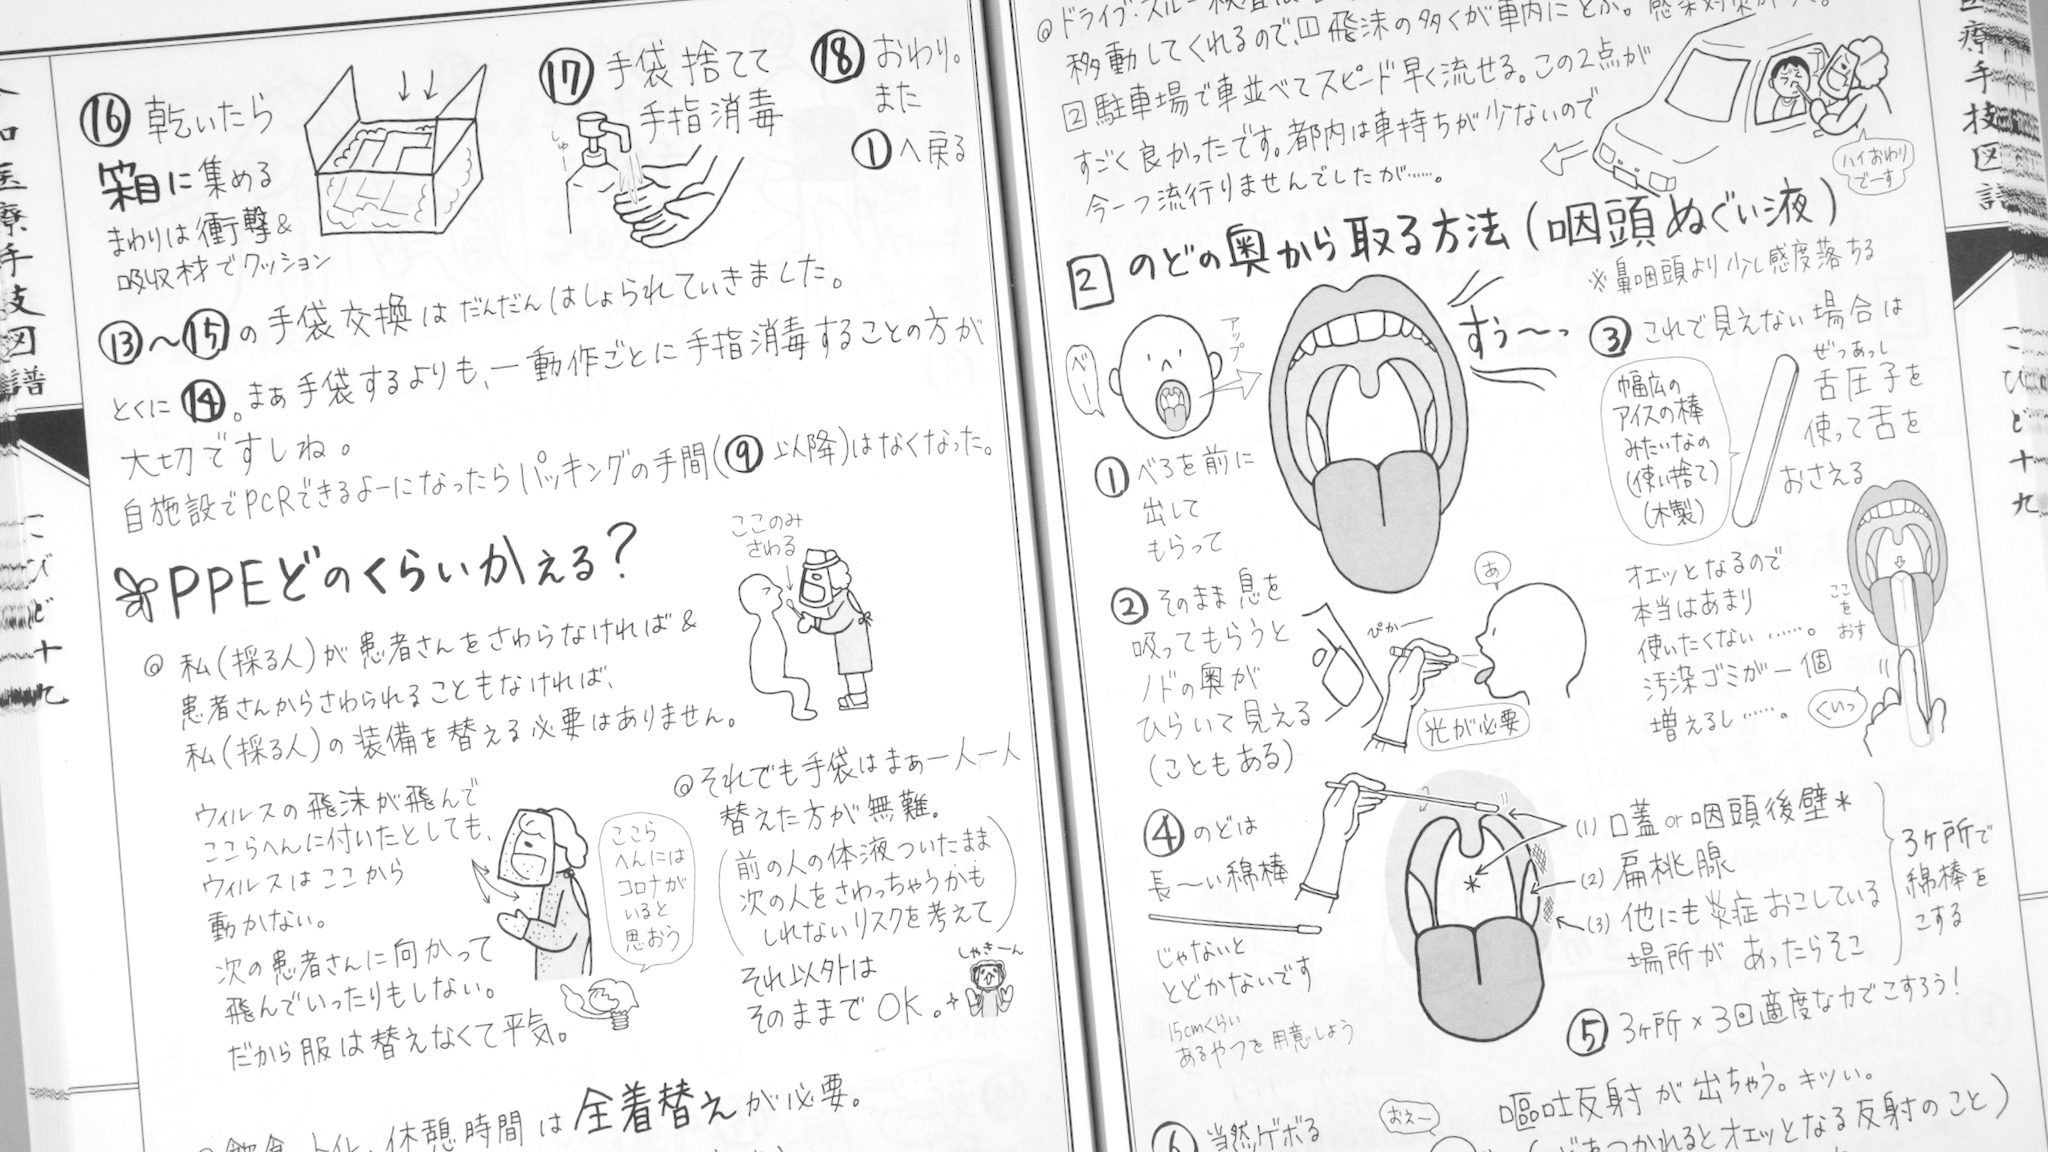 医療手技図譜
こびど十九
⑯ 乾いたら
箱に集める
まわりは衝撃&
吸収材でクッション
⑰ 手袋捨てて
手指消毒
しゅー
⑱ おわり。
また
①へ戻る
⑬〜⑮の手袋交換はだんだんはしょられていきました。
とくに⑭。まぁ手袋するよりも、一動作ごとに手指消毒することの方が
大切ですしね。
自施設でPCRできるよーになったらパッキングの手間(⑨以降)はなくなった。
PPEどのくらいかえる?
ここのみ
さわる
◎ 私(採る人)が患者さんをさわらなければ&
患者さんからさわられることもなければ、
私(採る人)の装備を替える必要はありません。
ウィルスの飛沫が飛んで
ここらへんに付いたとしても、
ウィルスはここから
動かない。
次の患者さんに向かって
飛んでいったりもしない。
だから服は替えなくて平気。
ここら
へんには
コロナが
いると
思おう
◎それでも手袋はまぁ一人一人
替えた方が無難。
(前の人の体液ついたまま
次の人をさわっちゃうかも
しれないリスクを考えて)
それ以外は
そのままでOK。
しゃきーん
休憩時間は全着替えが必要。
◎ドライブ・スルー
移動してくれるので、1 飛沫の多くが車内にとぶ。
2 駐車場で車並べてスピード早く流せる。この2点が
すごく良かったです。都内は車持ちが少ないので
今一つ流行りませんでしたが……。
ハイおわり
でーす
2 のどの奥から取る方法(咽頭ぬぐい液)
※鼻咽頭より少し感度落ちる
べー
アップ
すぅ〜っ
① べろを前に
出して
もらって
② そのまま息を
吸ってもらうと
ノドの奥が
ひらいて見える
(こともある)
ぴかー
あ
光が必要
③ これで見えない場合は
ぜつあっし
舌圧子を
使って舌を
おさえる
幅広の
アイスの棒
みたいなの
(使い捨て)
(木製)
オエッとなるので
本当はあまり
使いたくない……。
汚染ゴミが一個
増えるし……。
ここを
おす
ぐいっ
④ のどは
長〜い綿棒
じゃないと
とどかないです
15cmくらい
あるやつを用意しよう
(1) 口蓋or咽頭後壁*
(2) 扁桃腺
(3) 他にも炎症おこしている
場所があったらそこ
3ヶ所で
綿棒を
こする
*
⑤ 3ヶ所×3回適度な力でこすろう!
⑥ 当然ゲボる
おぇー
嘔吐反射が出ちゃう。キツい。
つかれるとオエッとなる反射のこと)